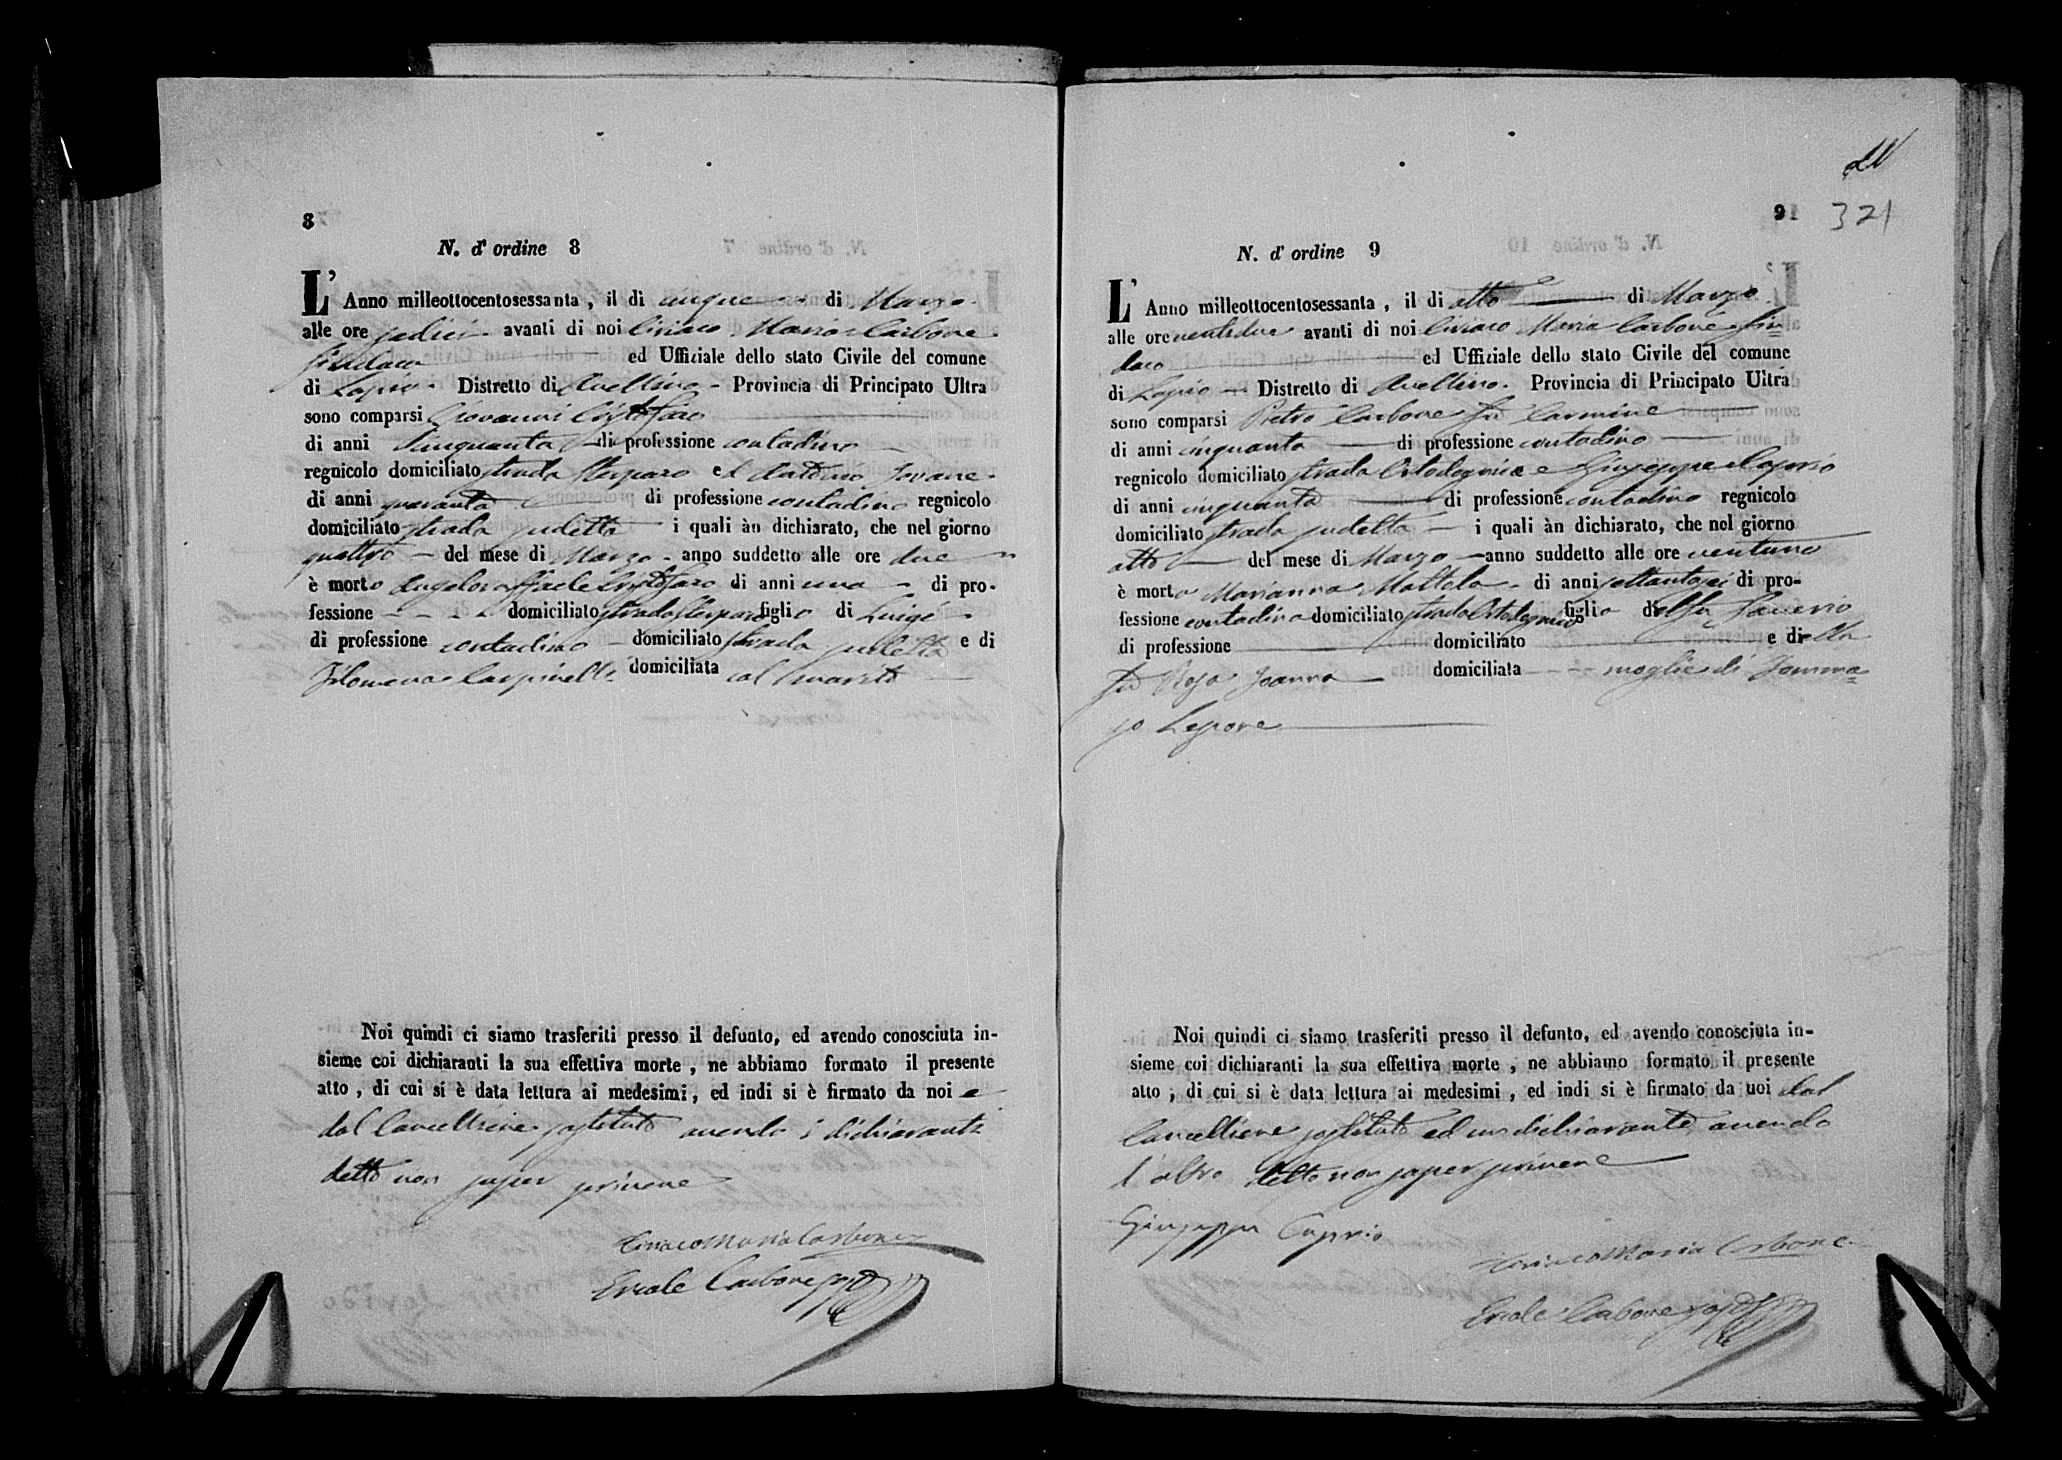 8
N. d' ordine 8
L' Anno milleottocentosessanta, il di cinque di Marzo
alle ore sedici avanti di noi Ciriaco Maria Carbone
Sindaco ed Uffiziale dello stato Civile del comune
di Lapio Distretto di Avellino - Provincia di Principato Ultra
sono comparsi Giovanni Cristofaro
di anni Cinquanta di professione contadino
regnicolo domiciliato strada e Antonio Iovane
di anni quaranta di professione contadino regnicolo
domiciliato strada sudetta i quali àn dichiarato, che nel giorno
quattro - del mese di Marzo - anno suddetto alle ore due
è morto Angeloraffaele Cristofaro di anni uno - di pro-
fessione - - - domiciliato strada figlio di Luigi
di professione contadino domiciliato strada sudetta e di
Filomena Carpinelli domiciliata col marito
Noi quindi ci siamo trasferiti presso il defunto, ed avendo conosciuta in-
sieme coi dichiaranti la sua effettiva morte, ne abbiamo formato il presente
atto, di cui si è data lettura ai medesimi, ed indi si è firmato da noi e
dal Cancelliere sostituto avendo i dichiaranti
detto non saper scrivere
Ciriaco Maria Carbone
Ercole Carbone sost
321
9
N. d' ordine 9
L' Anno milleottocentosessanta, il di otto di Marzo
alle ore ventidue avanti di noi Ciriaco Maria Carbone Sin=
daco ed Uffiziale dello stato Civile del comune
di Lapio - Distretto di Avellino. Provincia di Principato Ultra
sono comparsi Pietro Carbone fu Carmine
di anni cinquanta di professione contadino
regnicolo domiciliato strada e Giuseppe Caprio
di anni cinquanta di professione contadino regnicolo
domiciliato strada sudetta - i quali àn dichiarato, che nel giorno
otto del mese di Marzo - anno suddetto alle ore ventuno
è morta Marianna Mottola - di anni settantasei di pro-
fessione contadina domiciliato strada figlia del fu Saverio
di professione domiciliato e di della
fu Rosa Ioanna domiciliata - - - moglie di Tomma=
so Lepore
Noi quindi ci siamo trasferiti presso il defunto, ed avendo conosciuta in-
sieme coi dichiaranti la sua effettiva morte, ne abbiamo formato il presente
atto, di cui si è data lettura ai medesimi, ed indi si è firmato da noi dal
Cancelliere sostituto ed un dichiarante, avendo
l'altro detto non saper scrivere
Giuseppe Caprio
Ciriaco Maria Carbone
Ercole Carbone sost